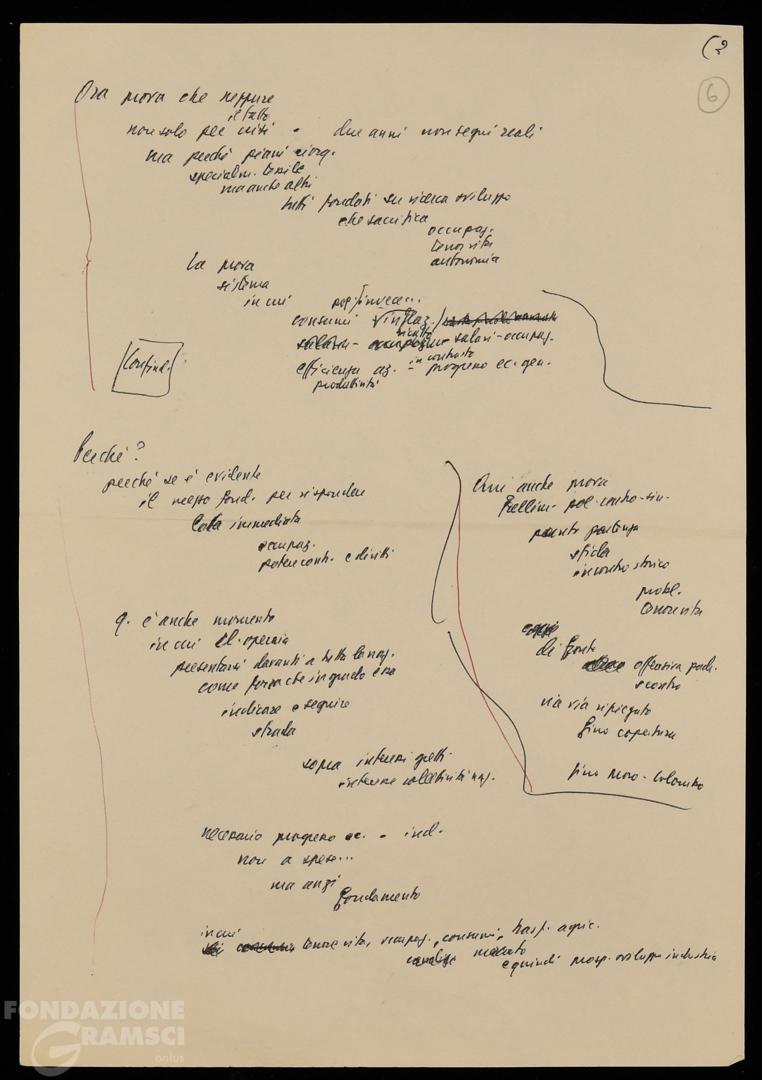 (3
6
Ora prova che neppure
il fatto
non solo per crisi - due anni non segni reali
ma perché piani riorg.
specialm. tessile
ma anche altri
tutti fondati su ricerca sviluppo
che sacrifica
occupaz.
tenor vita
autonomia
La prova
sistema
in cui poi invece...
consumi inflaz.
salari - occupaz.
efficienza az. - in contrasto progresso ec. gen.
produttività
Confind.
Perché?
perché se è evidente
il nesso fond. per rispondere
lotta immediata
occupaz.
potere contr. e diritti
q. è anche momento
in cui cl. operaia
presentarsi davanti a tutta la naz.
come forza che in grado essa
indicare e seguire
strada
sopra interessi gretti
interesse collettività naz.
Qui anche prova
pol. contro-sin.
punto partenza
sfida
incontro storico
probl.
tenor vita
di fronte
offensiva padr.
scontro
via via ripiegato
fino copertura
fino Moro-Colombo
necessario progresso ec. - ind.
non a spese...
ma anzi
fondamento
in cui
tenore vita, occupaz., consumi, trasf. agric.
mercato
e quindi sviluppo industria
FONDAZIONE
GRAMSCI
onlus